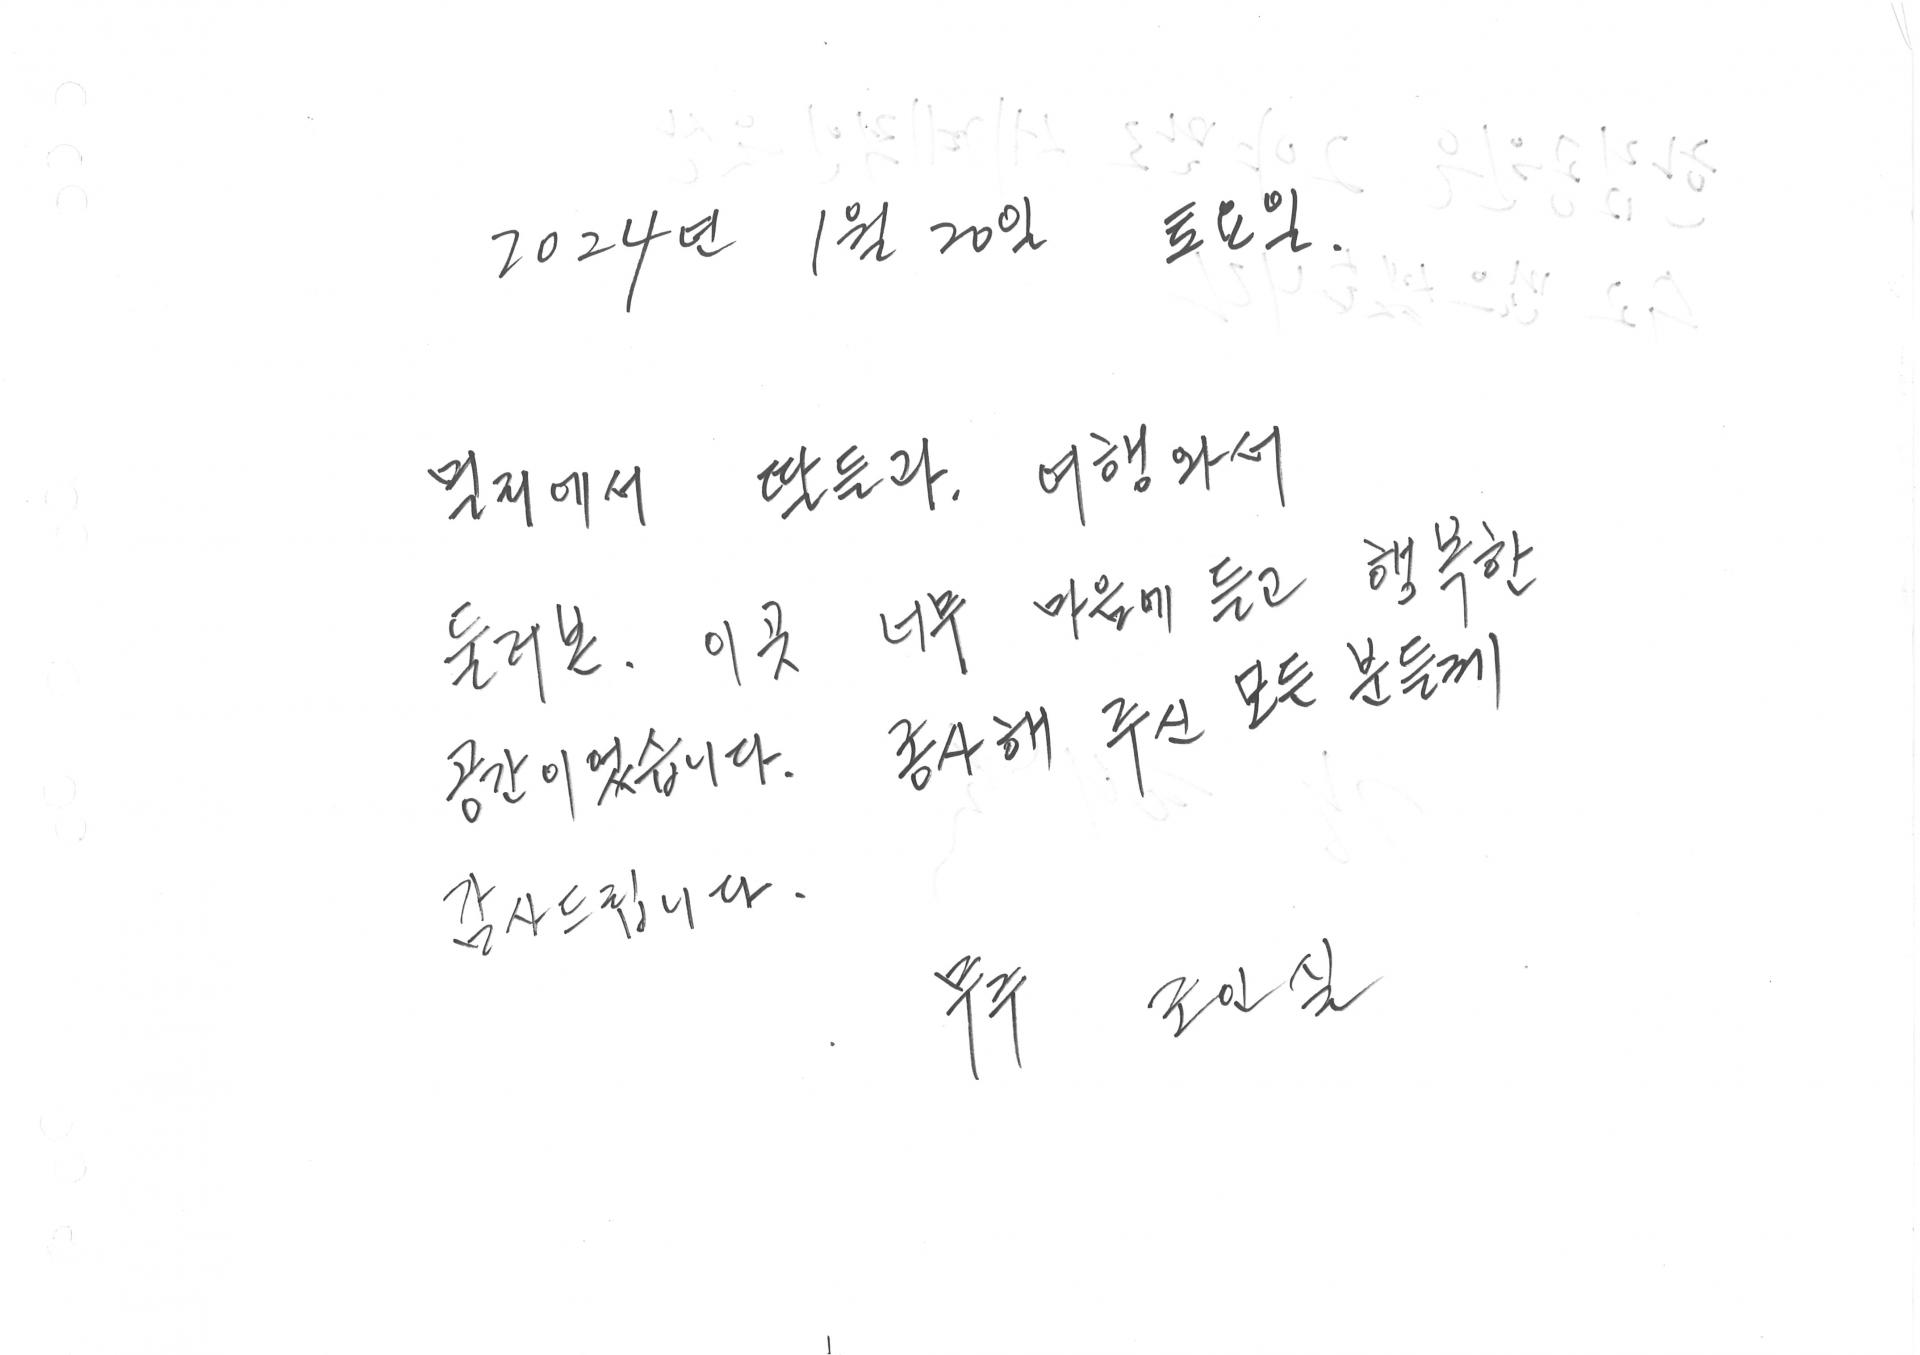 2024년 1월 20일 토요일.
멀리에서 딸들과. 여행와서
둘러본. 이곳 너무 마음에 들고 행복한
공간이었습니다. 종사해 주신 모든 분들께
감사드립니다.
무주 조인실